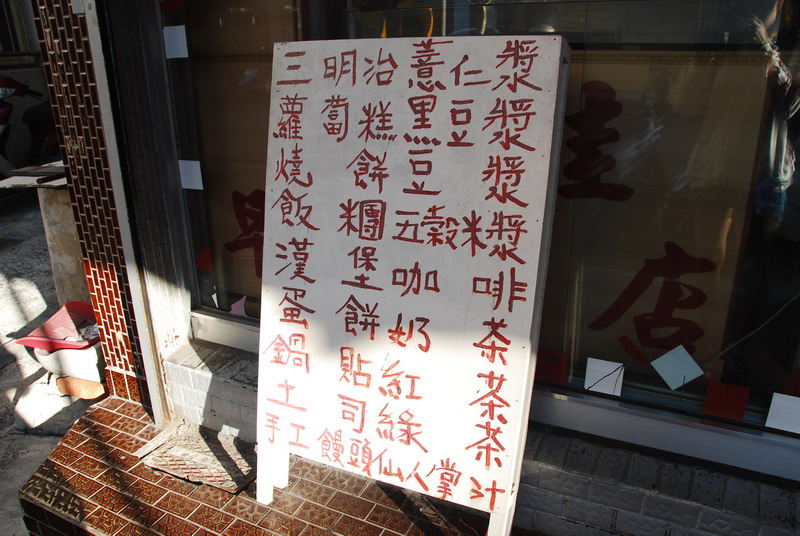 三明治 薏仁漿
蘿蔔糕 黑豆漿
燒餅 豆漿
飯糰 五穀米漿
漢堡 咖啡
蛋餅 奶茶
鍋貼 紅茶
土司 綠茶
手工饅頭 仙人掌汁
店